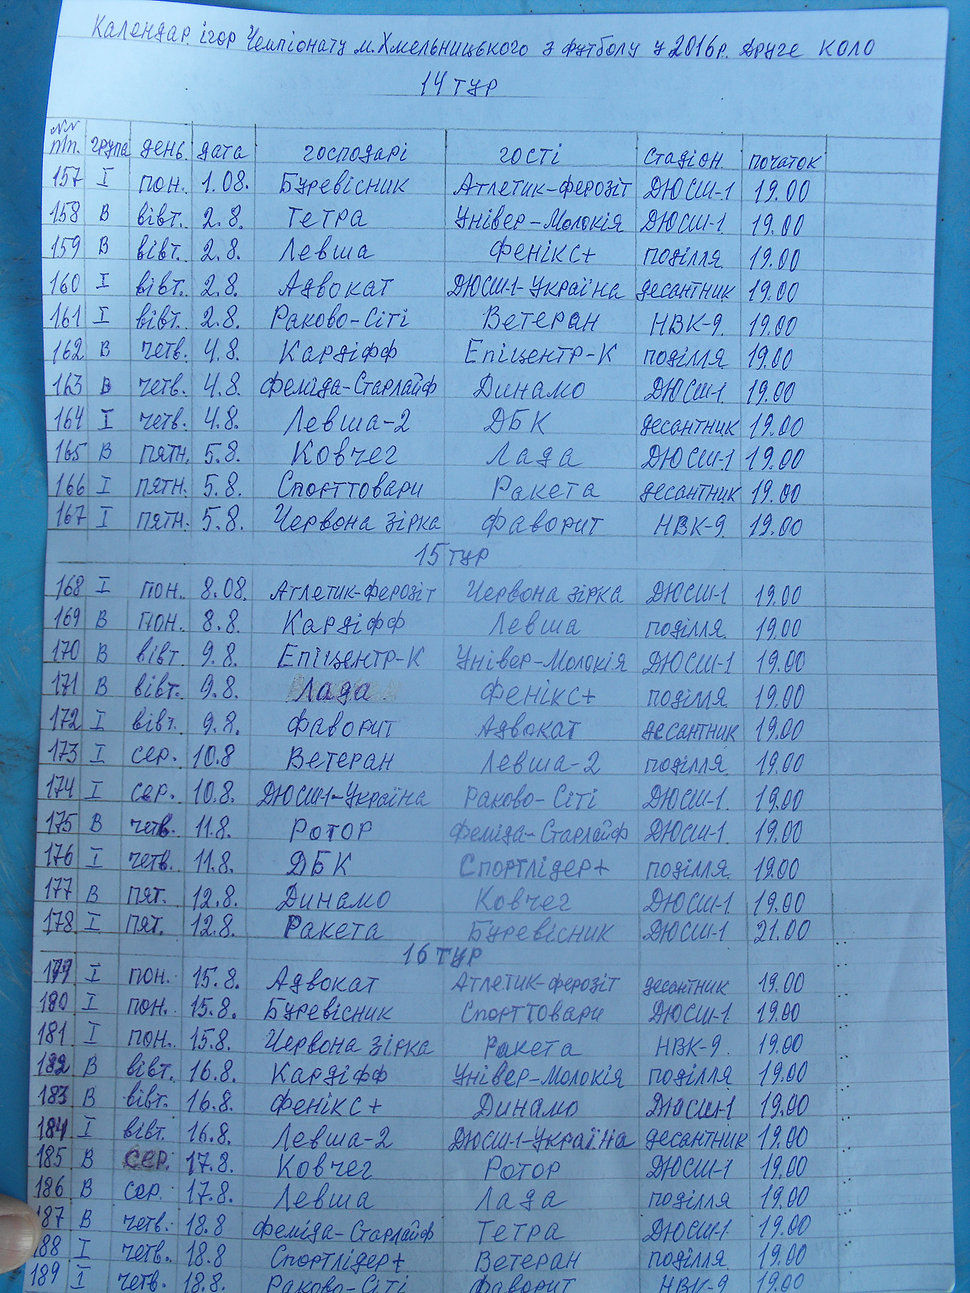 Календар ігор Чемпіонату м.Хмельницького з футболу у 2016р. Друге коло
14 тур
NN п/п. група день дата господарі гості стадіон початок
157 I пон. 1.08. Буревісник Атлетик-ферозіт ДЮСШ-1 19.00
158 В вівт. 2.8. Тетра Універ-Молокія ДЮСШ-1 19.00
159 В вівт. 2.8. Левша Фенікс+ поділля 19.00
160 I вівт. 2.8. Адвокат ДЮСШ1-Україна десантник 19.00
161 I вівт. 2.8. Раково-Сіті Ветеран НВК-9 19.00
162 В четв. 4.8. Кардіфф Епіцентр-К поділля 19.00
163 В четв. 4.8. Феміда-Старлайф Динамо ДЮСШ-1 19.00
164 I четв. 4.8. Левша-2 ДБК десантник 19.00
165 В пятн. 5.8. Ковчег Лада ДЮСШ-1 19.00
166 I пятн. 5.8. Спорттовари Ракета десантник 19.00
167 I пятн. 5.8. Червона зірка Фаворит НВК-9 19.00
15 тур
168 I пон. 8.08. Атлетик-ферозіт Червона зірка ДЮСШ-1 19.00
169 В пон. 8.8. Кардіфф Левша поділля 19.00
170 В вівт 9.8. Епіцентр-К Універ-Молокія ДЮСШ-1 19.00
171 В вівт. 9.8. Лада Фенікс+ поділля 19.00
172 I вівт. 9.8. Фаворит Адвокат десантник 19.00
173 I сер. 10.8 Ветеран Левша-2 поділля 19.00
174 I сер. 10.8. ДЮСШ1-Україна Раково-Сіті ДЮСШ-1. 19.00
175 В четв. 11.8. Ротор Феміда-Старлайф ДЮСШ-1 19.00
176 I четв. 11.8. ДБК Спортлідер+ поділля 19.00
177 В пят. 12.8. Динамо Ковчег ДЮСШ-1 19.00
178 I пят. 12.8. Ракета Буревісник ДЮСШ-1 21.00
16 тур
179 I пон. 15.8. Адвокат Атлетик-ферозіт десантник 19.00
180 I пон. 15.8. Буревісник Спорттовари ДЮСШ-1 19.00
181 I пон. 15.8. Червона зірка Ракета НВК-9 19.00
182 В вівт. 16.8. Кардіфф Універ-Молокія поділля 19.00
183 В вівт. 16.8. Фенікс+ Динамо ДЮСШ-1 19.00
184 I вівт. 16.8. Левша-2 ДЮСШ1-Україна десантник 19.00
185 В сер. 17.8. Ковчег Ротор ДЮСШ-1 19.00
186 В сер. 17.8. Левша Лада поділля 19.00
87 В четв. 18.8 Феміда-Старлайф Тетра ДЮСШ-1 19.00
88 I четв. 18.8 Спортлідер+ Ветеран поділля 19.00
189 I четв. 18.8. Раково-Сіті Фаворит НВК-9 19.00